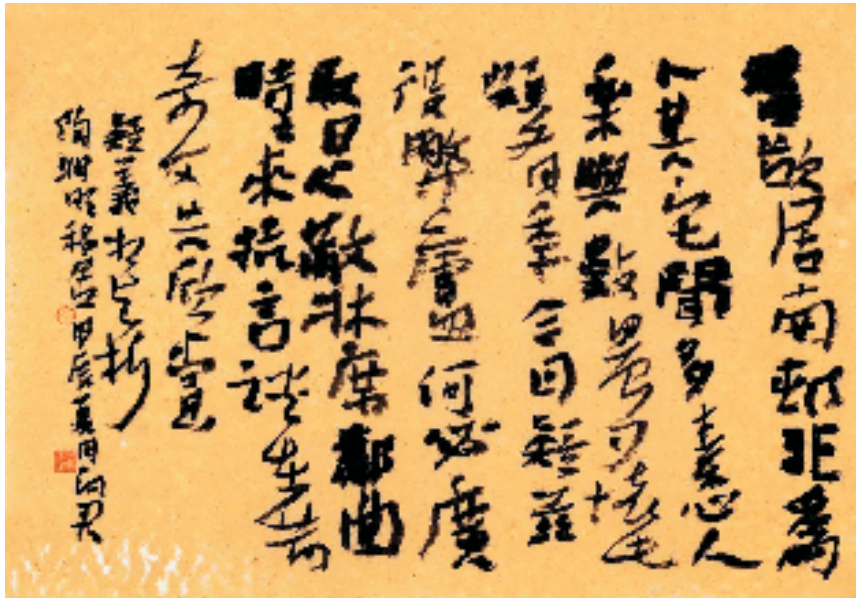 昔欲居南邨非為
卜其宅聞多素心人
樂與數晨夕懷此
頗有年今日從茲
役弊廬何必廣
取足蔽牀席鄰曲
時時來抗言談在昔
奇文共欣賞
疑義相與析
陶淵明移居 甲辰夏月